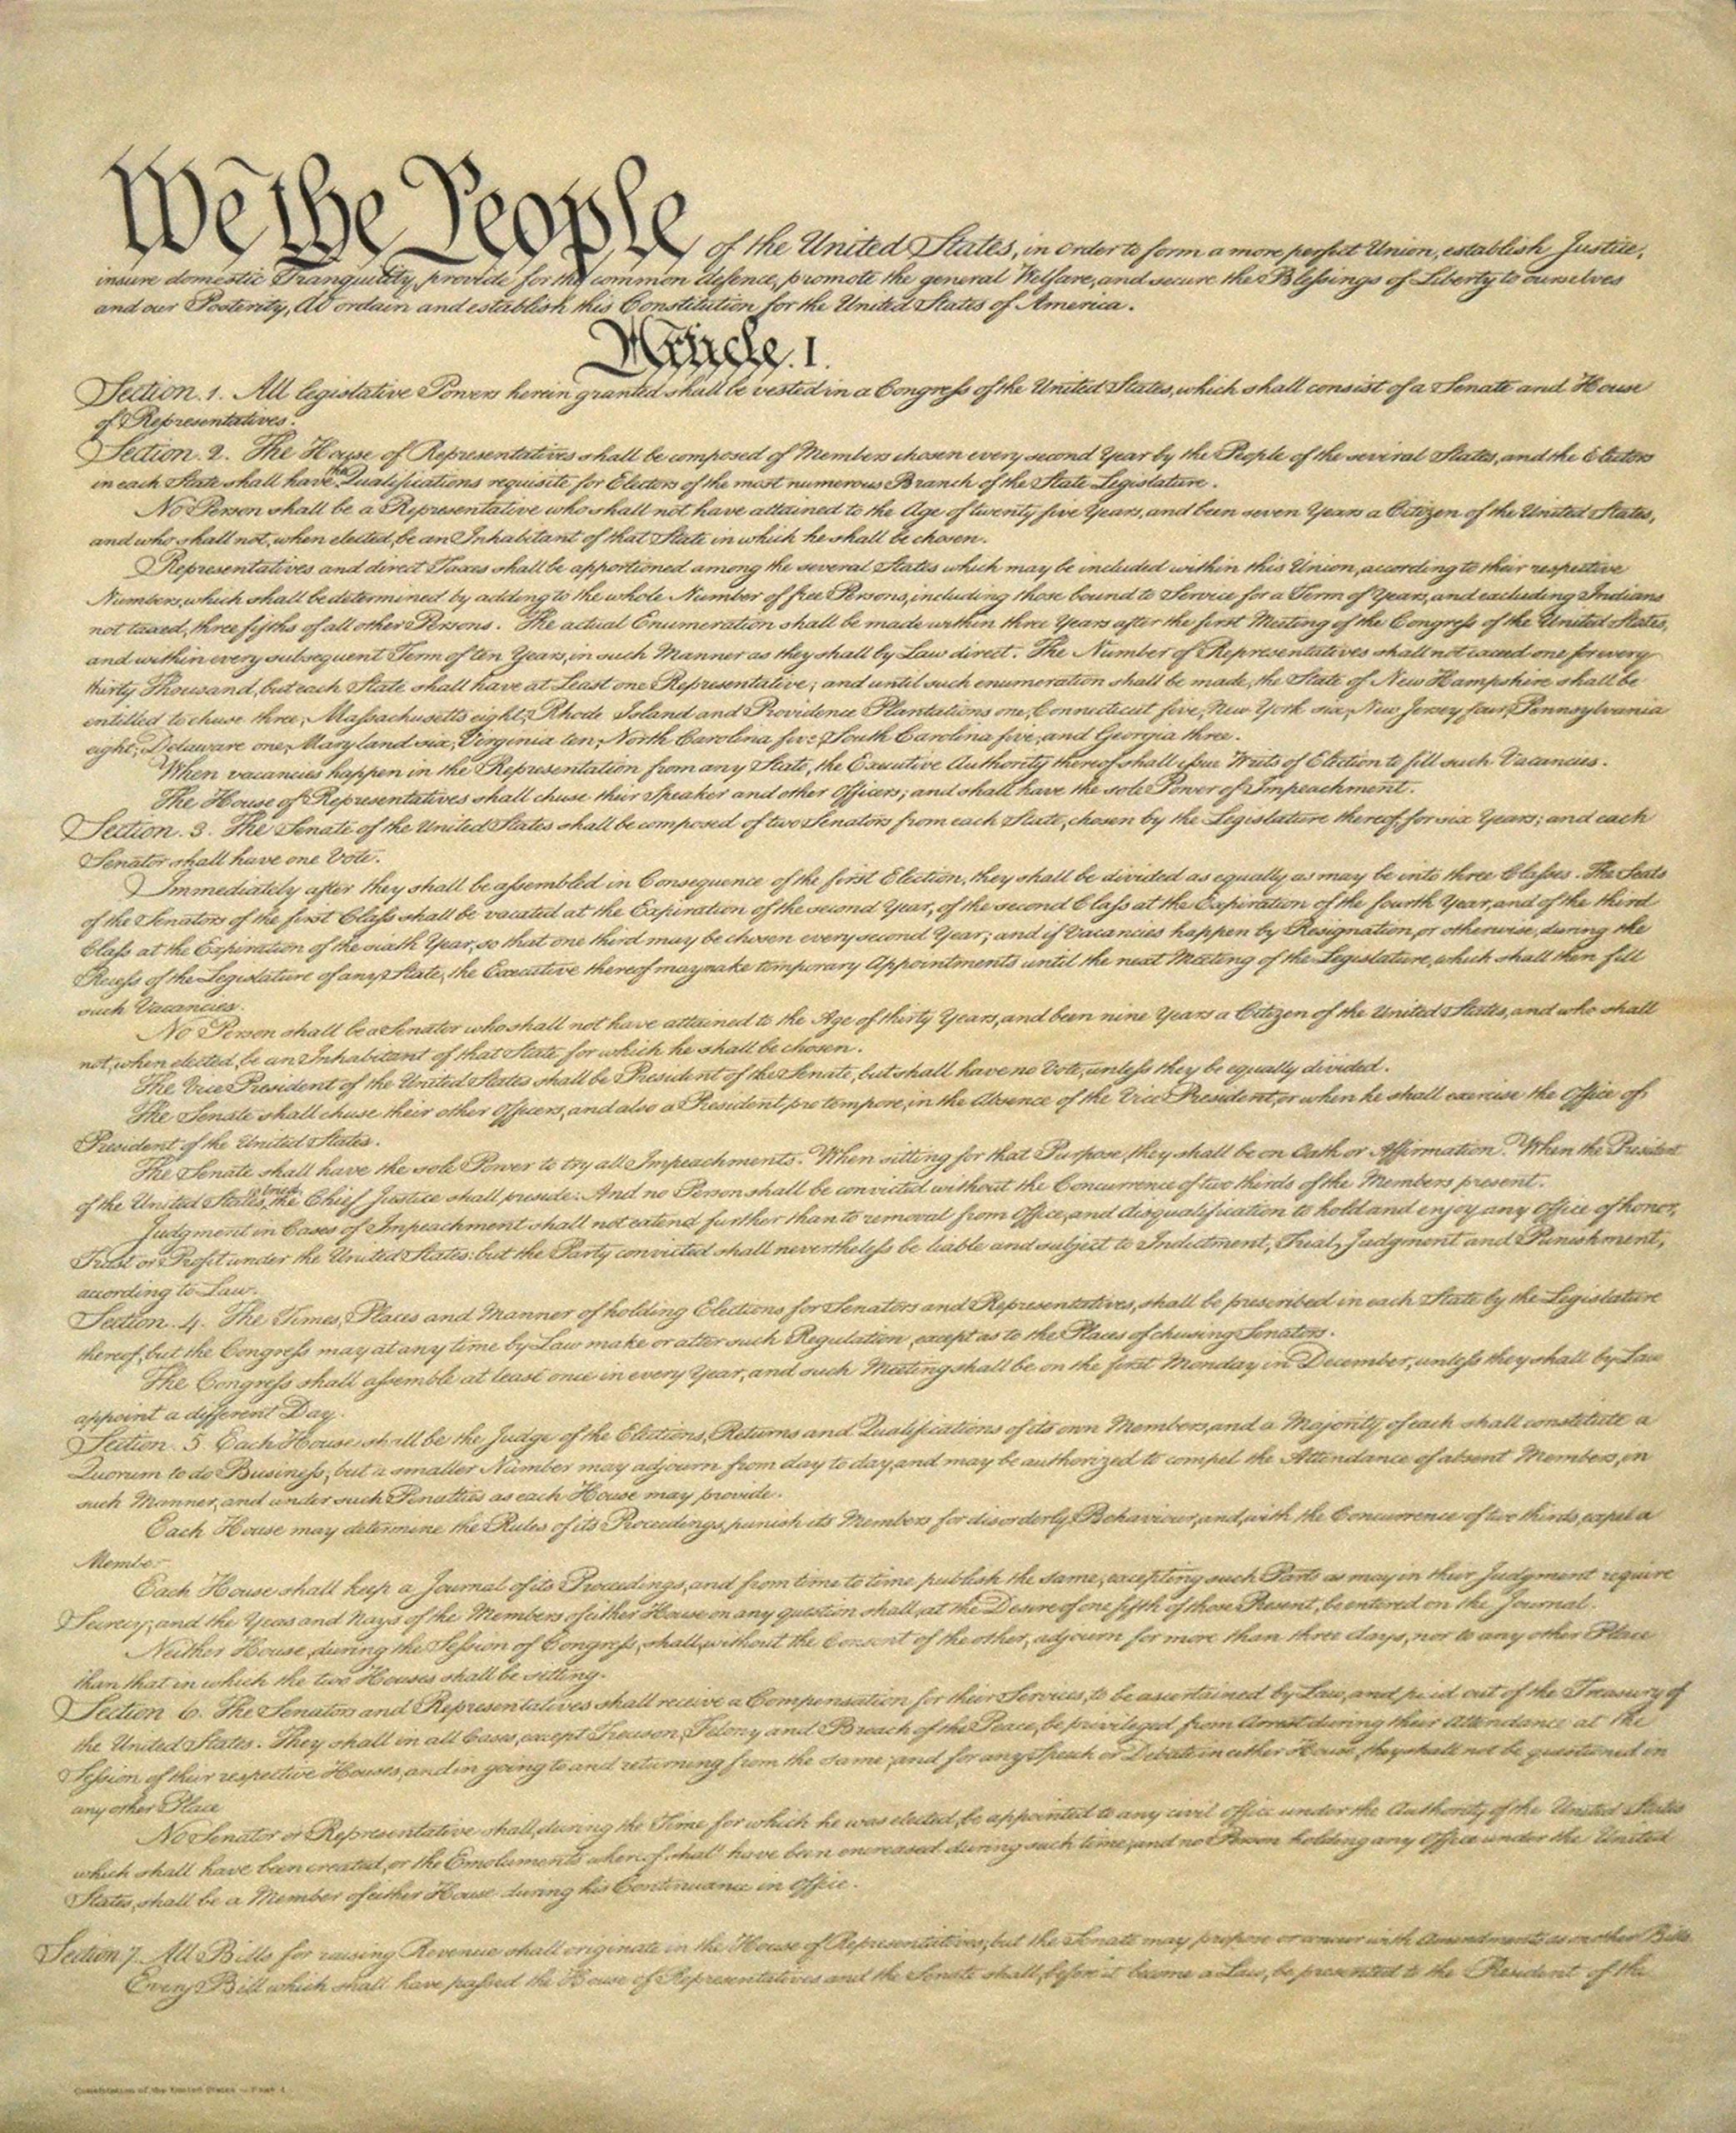 We the People of the United States, in order to form a more perfect Union, establish Justice,
insure domestic Tranquility, provide for the common defence, promote the general Welfare, and secure the Blessings of Liberty to ourselves
and our Posterity, do ordain and establish this Constitution for the United States of America.
Article. I.
Section. 1. All legislative Powers herein granted shall be vested in a Congress of the United States, which shall consist of a Senate and House
of Representatives.
Section. 2. The House of Representatives shall be composed of Members chosen every second Year by the People of the several States, and the Electors
in each State shall have the Qualifications requisite for Electors of the most numerous Branch of the State Legislature.
No Person shall be a Representative who shall not have attained to the Age of twenty five Years, and been seven Years a Citizen of the United States,
and who shall not, when elected, be an Inhabitant of that State in which he shall be chosen.
Representatives and direct Taxes shall be apportioned among the several States which may be included within this Union, according to their respective
Numbers, which shall be determined by adding to the whole Number of free Persons, including those bound to Service for a Term of Years, and excluding Indians
not taxed, three fifths of all other Persons. The actual Enumeration shall be made within three Years after the first Meeting of the Congress of the United States,
and within every subsequent Term of ten Years, in such Manner as they shall by Law direct. The Number of Representatives shall not exceed one for every
thirty Thousand, but each State shall have at Least one Representative; and until such enumeration shall be made, the State of New Hampshire shall be
entitled to chuse three, Massachusetts eight, Rhode Island and Providence Plantations one, Connecticut five, New York six, New Jersey four, Pennsylvania
eight, Delaware one, Maryland six, Virginia ten, North Carolina five, South Carolina five, and Georgia three.
When vacancies happen in the Representation from any State, the Executive Authority thereof shall issue Writs of Election to fill such Vacancies.
The House of Representatives shall chuse their Speaker and other Officers; and shall have the sole Power of Impeachment.
Section. 3. The Senate of the United States shall be composed of two Senators from each State, chosen by the Legislature thereof, for six Years; and each
Senator shall have one Vote.
Immediately after they shall be assembled in Consequence of the first Election, they shall be divided as equally as may be into three Classes. The Seats
of the Senators of the first Class shall be vacated at the Expiration of the second Year, of the second Class at the Expiration of the fourth Year, and of the third
Class at the Expiration of the sixth Year, so that one third may be chosen every second Year; and if Vacancies happen by Resignation, or otherwise, during the
Recess of the Legislature of any State, the Executive thereof may make temporary Appointments until the next Meeting of the Legislature, which shall then fill
such Vacancies.
No Person shall be a Senator who shall not have attained to the Age of thirty Years, and been nine Years a Citizen of the United States, and who shall
not, when elected, be an Inhabitant of that State for which he shall be chosen.
The Vice President of the United States shall be President of the Senate, but shall have no Vote, unless they be equally divided.
The Senate shall chuse their other Officers, and also a President pro tempore, in the Absence of the Vice President, or when he shall exercise the Office of
President of the United States.
The Senate shall have the sole Power to try all Impeachments. When sitting for that Purpose, they shall be on Oath or Affirmation. When the President
of the United States is tried, the Chief Justice shall preside: And no Person shall be convicted without the Concurrence of two thirds of the Members present.
Judgment in Cases of Impeachment shall not extend further than to removal from Office, and disqualification to hold and enjoy any Office of honor,
Trust or Profit under the United States: but the Party convicted shall nevertheless be liable and subject to Indictment, Trial, Judgment and Punishment,
according to Law.
Section. 4. The Times, Places and Manner of holding Elections for Senators and Representatives, shall be prescribed in each State by the Legislature
thereof, but the Congress may at any time by Law make or alter such Regulation, except as to the Places of chusing Senators.
The Congress shall assemble at least once in every Year, and such Meeting shall be on the first Monday in December, unless they shall by Law
appoint a different Day.
Section. 5. Each House shall be the Judge of the Elections, Returns and Qualifications of its own Members, and a Majority of each shall constitute a
Quorum to do Business, but a smaller Number may adjourn from day to day, and may be authorized to compel the Attendance of absent Members, in
such Manner, and under such Penalties as each House may provide.
Each House may determine the Rules of its Proceedings, punish its Members for disorderly Behaviour, and, with the Concurrence of two thirds, expel a
Member.
Each House shall keep a Journal of its Proceedings, and from time to time publish the same, excepting such Parts as may in their Judgment require
Secrecy; and the Yeas and Nays of the Members of either House on any question shall, at the Desire of one fifth of those Present, be entered on the Journal.
Neither House, during the Session of Congress, shall, without the Consent of the other, adjourn for more than three days, nor to any other Place
than that in which the two Houses shall be sitting.
Section. 6. The Senators and Representatives shall receive a Compensation for their Services, to be ascertained by Law, and paid out of the Treasury of
the United States. They shall in all Cases, except Treason, Felony and Breach of the Peace, be privileged from Arrest during their Attendance at the
Session of their respective Houses, and in going to and returning from the same; and for any Speech or Debate in either House, they shall not be questioned in
any other Place
No Senator or Representative shall, during the Time for which he was elected, be appointed to any civil Office under the Authority of the United States
which shall have been created, or the Emoluments whereof shall have been encreased during such time; and no Person holding any Office under the United
States, shall be a Member of either House during his Continuance in Office.
Section 7. All Bills for raising Revenue shall originate in the House of Representatives; but the Senate may propose or concur with Amendments as on other Bills.
Every Bill which shall have passed the House of Representatives and the Senate shall, before it become a Law, be presented to the President of the
Constitution of the United States — Page 1